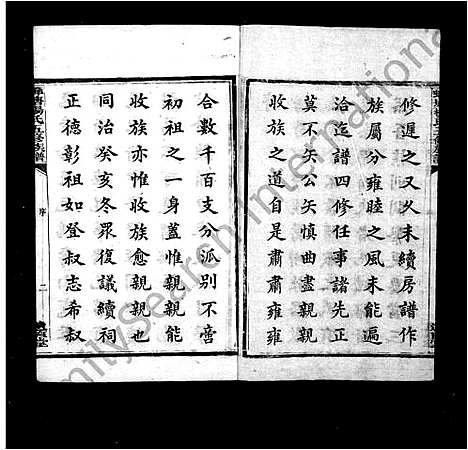 修遲之又久未續房譜作
族屬分雍睦之風未能遍
洽迄譜四修任事諸先正
莫不矢公矢慎曲盡親親
收族之道自是肅肅雍雍
合數千百支分派別不啻
初祖之一身蓋惟親親能
收族亦惟收族愈親親也
同治癸亥冬眾復議續祠
正德彰祖如登叔志希叔
序
二
FamilySearch International